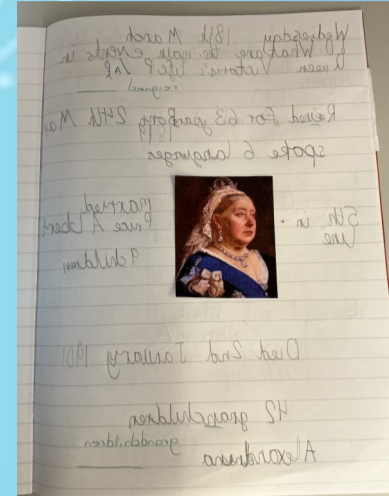 Wednesday 18th March
What are the main events in
Queen Victoria's life?
reigned
Reined for 63 years Born 24th May
1819
spoke 6 languages
5th in
line
married
Price Albert
9 children
Died 2nd January 1901
42 granchildren
grandchildren